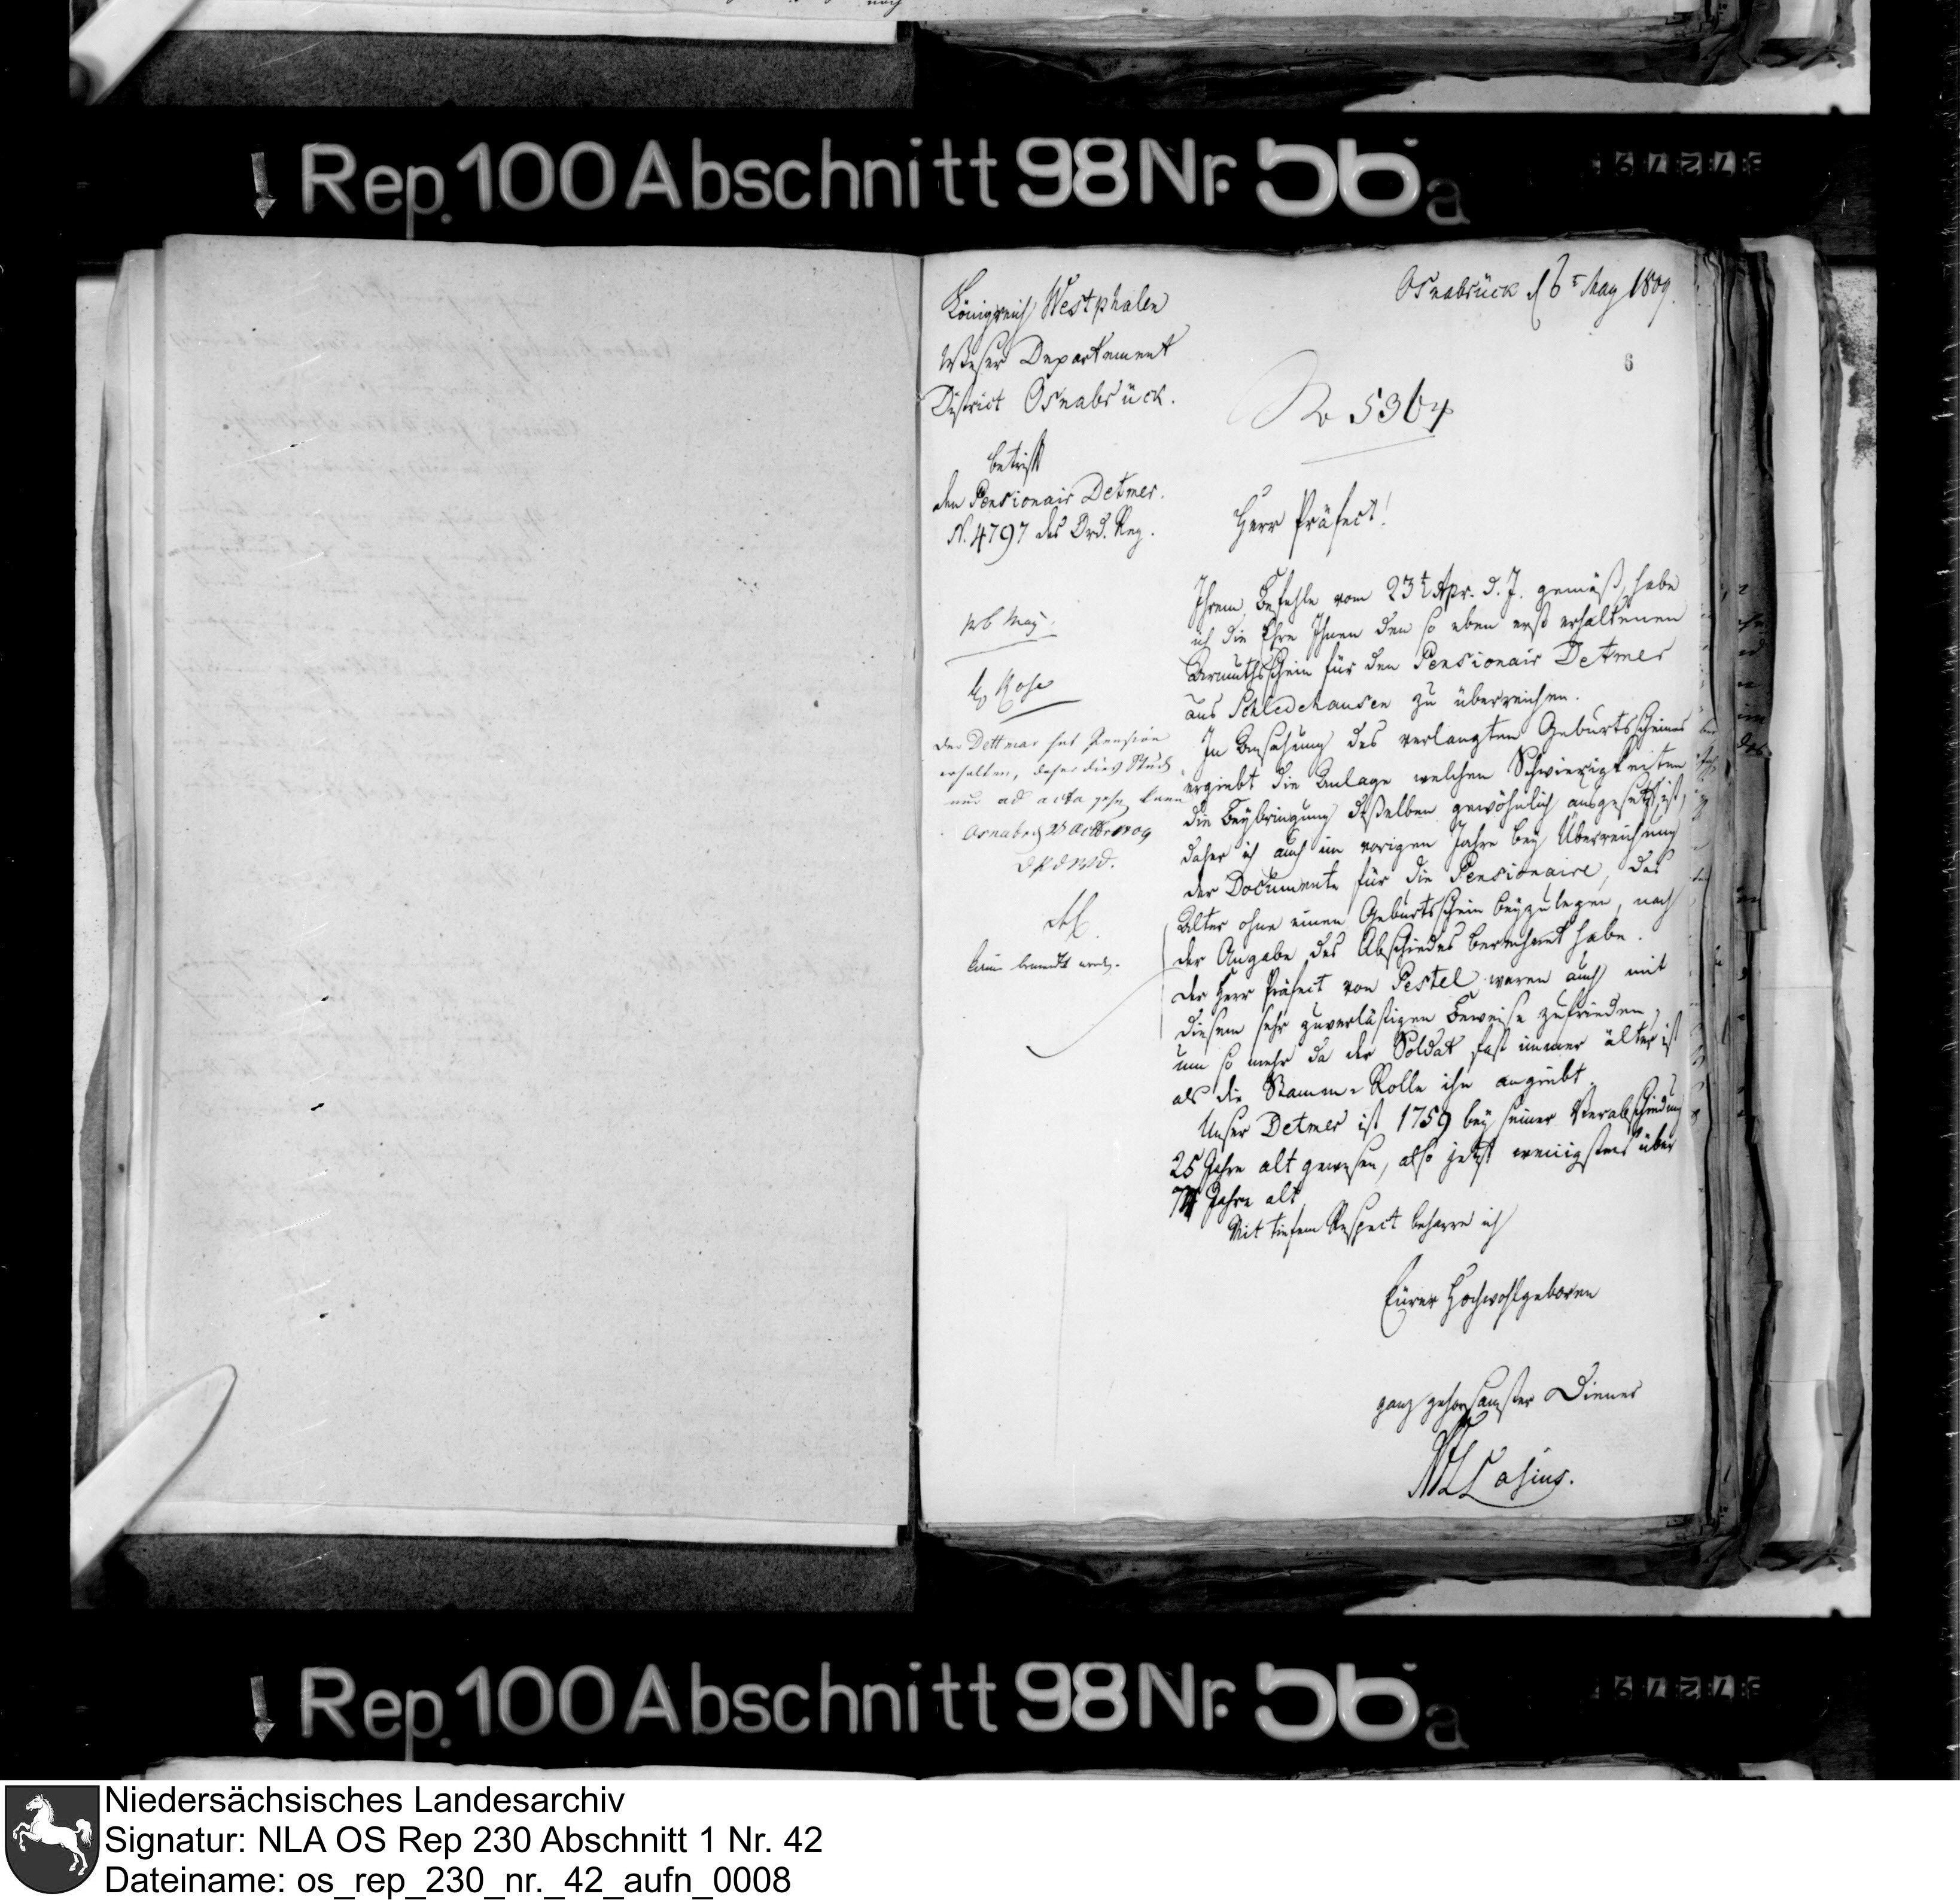 Rep. 100 Abschnitt 98 Nr. 56a
Königreich Westphalen
Weser Departement
District Osnabrück.
betrifft
den Pensionair Detmer.
N. 4797 des Ord. Reg.
May
Rose
Der Dettmar hat Pension
erhalten, daher dies Stück
nur ad acta gehen kann
Osnabrück 25 Octbr 1809
Osnabrück d 6t May 1809.
6
No 5364
Herr Präfect!
Ihrem Befehle vom 23t Apr. d. J. gemäß, habe
ich die Ehre Ihnen den so eben erst erhaltenen
Armuthsschein für den Pensionair Detmer
aus Schledehausen zu überreichen.
In Ansehung des verlangten Geburtsscheines
ergiebt die Anlage welchen Schwierigkeiten
die Beybringung deßelben gewöhnlich ausgesetzt ist,
daher ich auch im vorigen Jahre bey Überreichung
der Documente für die Pensionaire, das
Alter ohne einen Geburtsschein beyzulegen, nach
der Angabe des Abschiedes berechnet habe.
Der Herr Präfect von Pestel waren auch mit
diesem sehr zuverläßigen Beweise zufrieden,
um so mehr da der Soldat fast immer älter ist
als die Stamm-Rolle ihn angiebt.
Unser Detmer ist 1759 bey seiner Verabschiedung
25 Jahre alt gewesen, also jetzt wenigstens über
Jahre alt.
Mit tiefem Respect beharre ich
Eürer Hochwohlgeboren
ganz gehorsamster Diener
Rep. 100 Abschnitt 98 Nr. 56a
Niedersächsisches Landesarchiv
Signatur: NLA OS Rep 230 Abschnitt 1 Nr. 42
Dateiname: os_rep_230_nr._42_aufn_0008